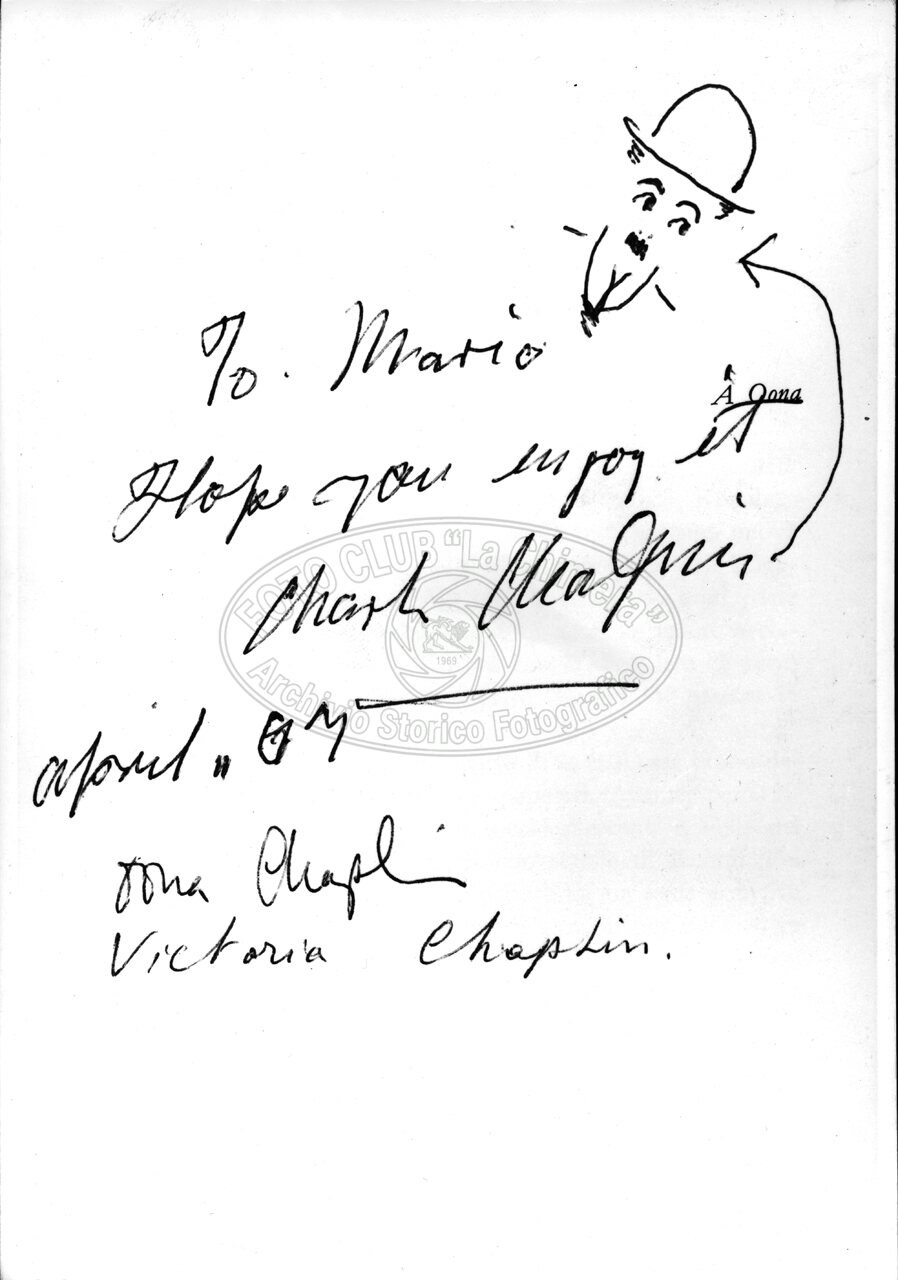 To. Mario
À Oona
Hope you enjoy it
Charlie Chaplin
FOTO CLUB "La Chimera"
1969
Archivio Storico Fotografico
April
Oona Chaplin
Victoria Chaplin.